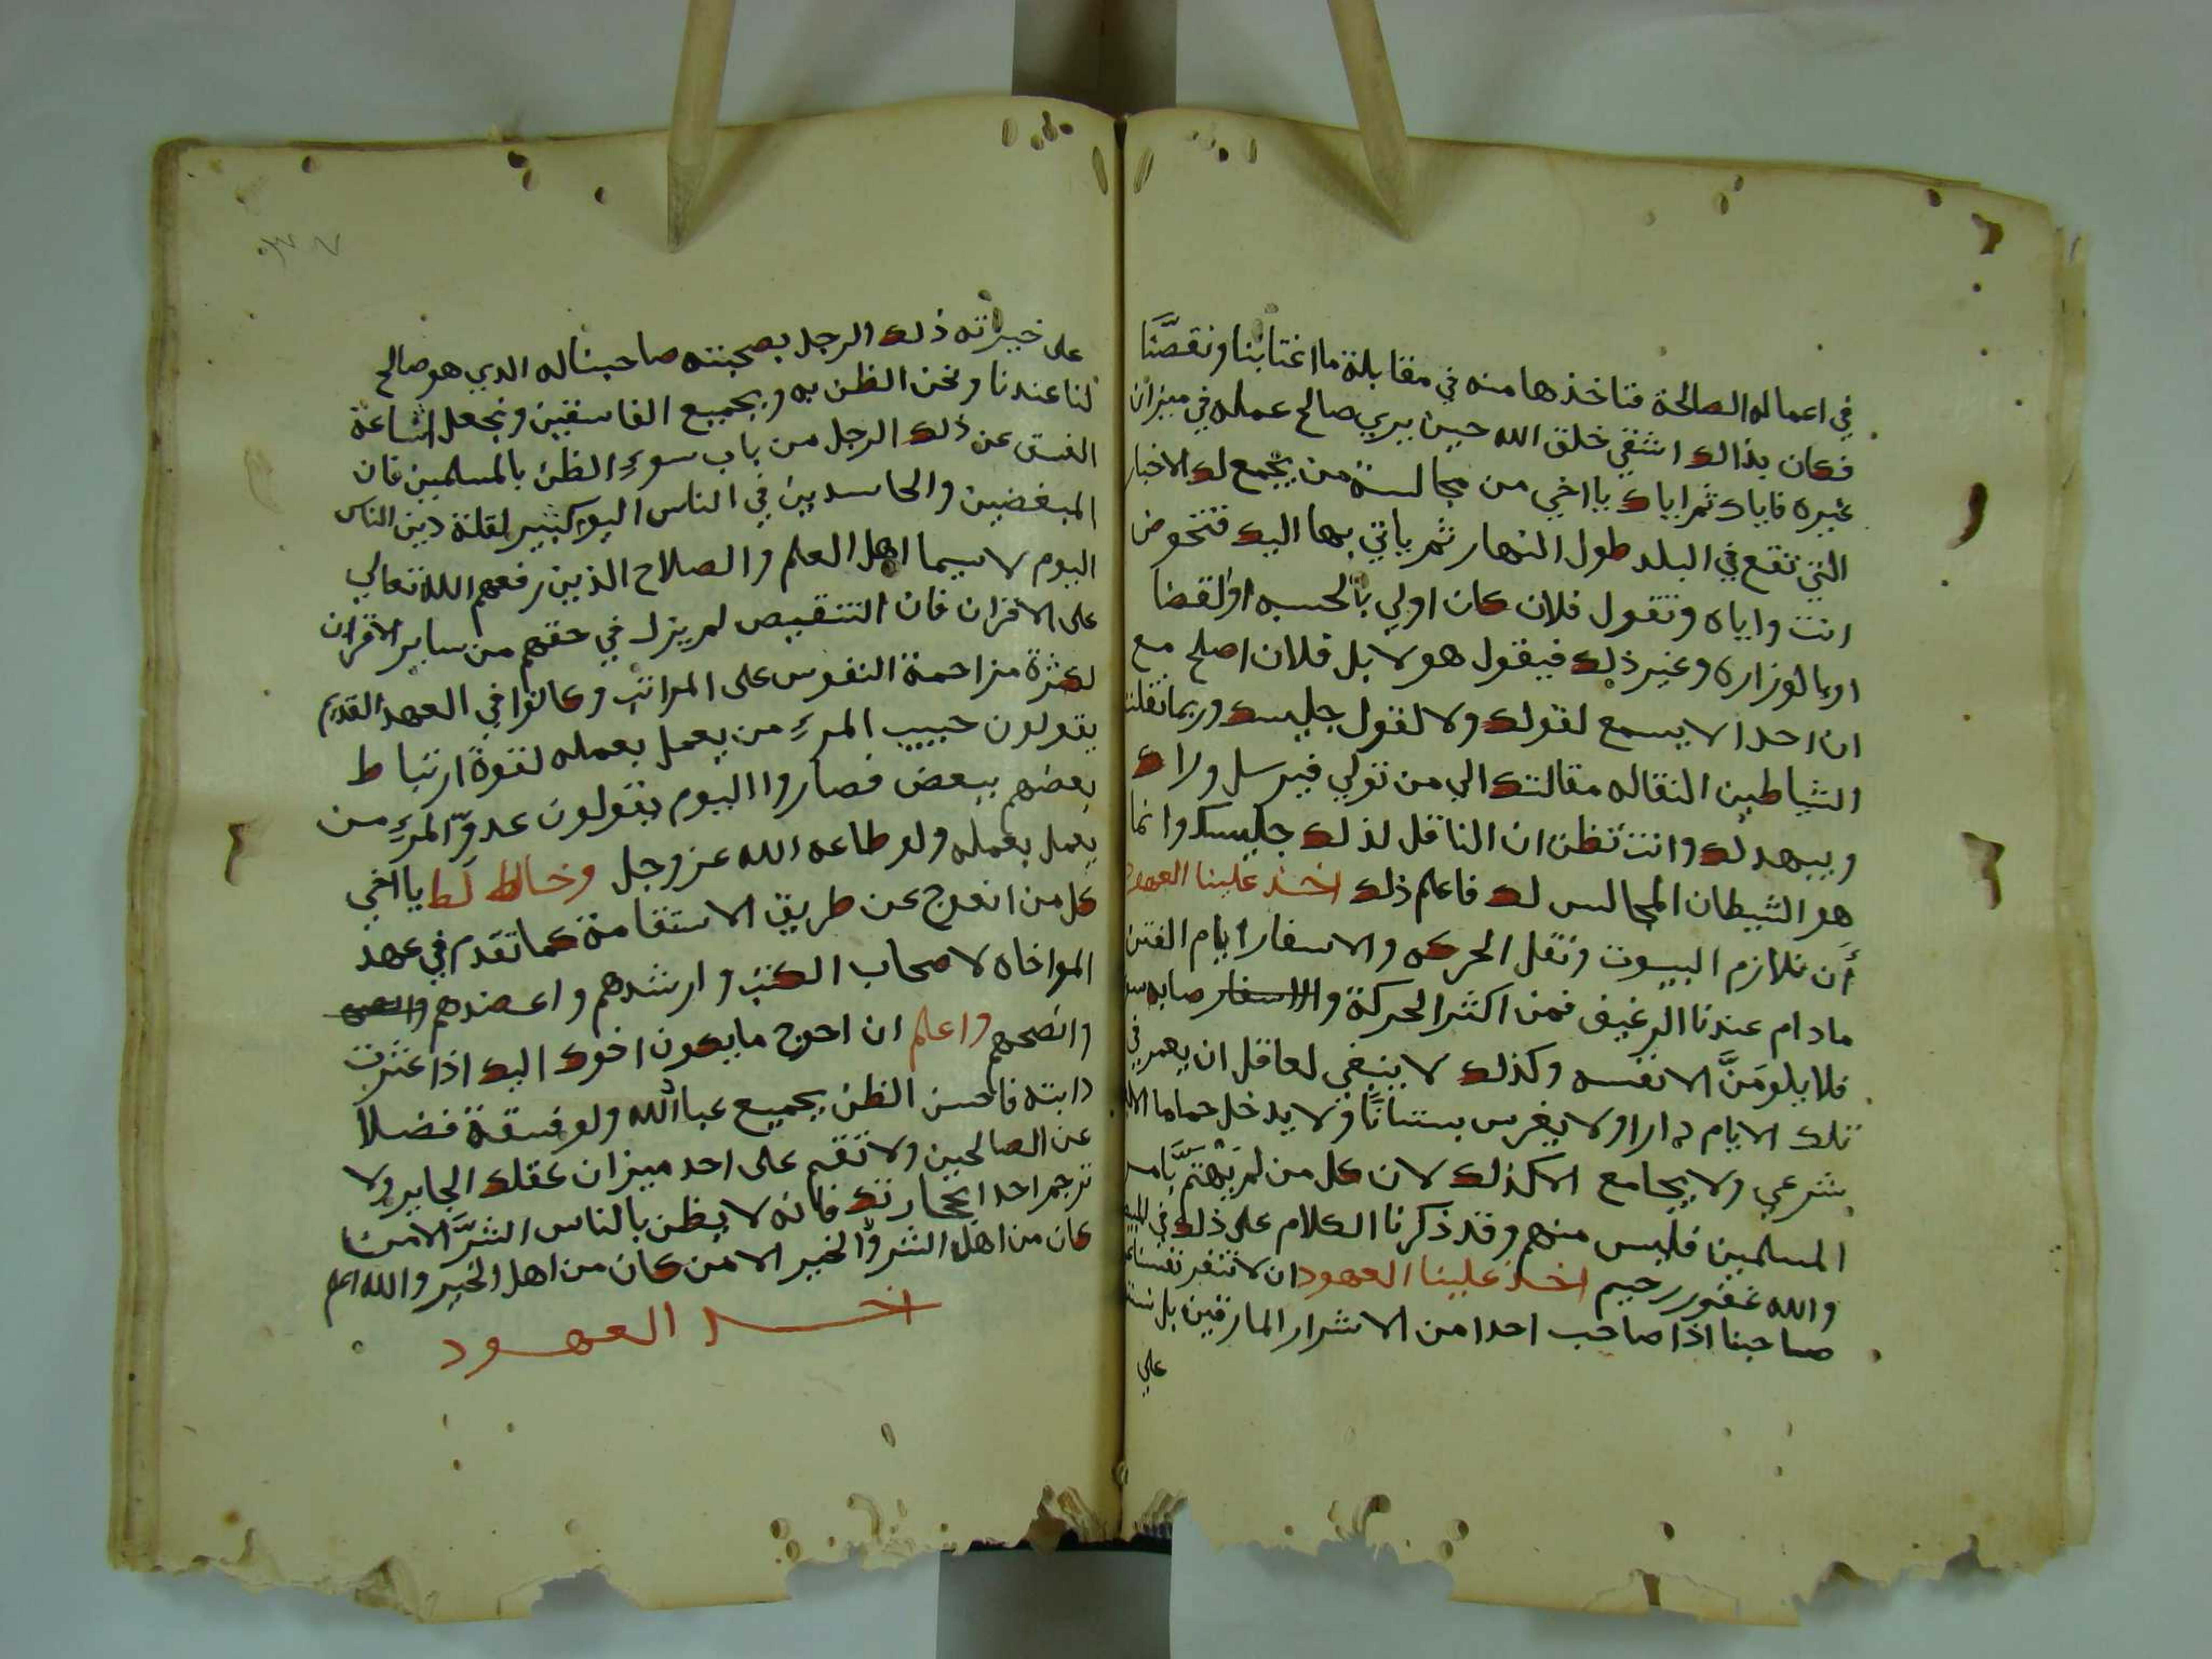 في اعماله الصالحة فتاخذها منه في مقابلة ما اغتابنا ونقصَّنا
فكان بذالك اشقي خلق الله حين يري صالح عمله في ميزان
غيره فاياك ثم اياك يا اخي من مجالسة من يجمع لك الاخبار
التي تقع في البلد طول النهار ثم ياتي بها اليك فتخوض
انت واياه وتقول فلان كان اولي بالحسبه او القضا
او بالوزاره وغير ذلك فيقول هو لا بل فلان اصلح مع
ان احدا لا يسمع لقولك ولا لقول جليسك وربما نقلت
الشياطين النقاله مقالتك الي من تولي فيرسل وراك
ويبهدلك وانت تظن ان الناقل لذلك جليسك وانما
هو الشيطان المجالس لك فاعلم ذلك اخذ علينا العهود
أن نلازم البيوت ونقل الحركه والاسفار ايام الفتن
مادام عندنا الرغيف فمن اكثر الحركة والاسفار صابه
فلا يلومَنَّ الا نفسه وكذلك لا ينبغي لعاقل ان يعمر في
تلك الايام دارا ولا يغرس بستانًا ولا يدخل حماما
شرعي ولا يجامع الا كذلك لان كل من لم يهتمَّ بامر
المسلمين فليس منهم وقد ذكرنا الكلام على ذلك في
والله غفور رحيم اخذ علينا العهود ان لا تتغير نفسنا
صاحبنا اذا صاحب احدا من الاشرار المارقين بل
علي
على خيراته ذلك الرجل بصحبته صاحبنا له الدي هو صالح
لنا عندنا ونحن الظن به وبجميع الفاسقين ونجعل اشاعة
الفسق عن ذلك الرجل من باب سوءِ الظن بالمسلمين فان
المبغضين والحاسدين في الناس اليوم كثير لقلة دين الناس
اليوم لا سيما اهل العلم والصلاح الذين رفعهم الله تعالي
على الاقران فان التنقيص لم يزل في حقهم من ساير الاقران
لكثرة مزاحمة النفوس على المراتب وكانوا في العهد القديم
يقولون حبيب المرءِ من يعمل بعمله لقوة ارتباط
بعضهم ببعض فصاروا اليوم يقولون عدوّ المرءِ من
يعمل بعمله ولو طاعه الله عز وجل وخالط يا اخي
كل من انعوج عن طريق الاستقامة كما تقدم في عهد
المواخاه لاصحاب الكتب وارشدهم واعضدهم
وانصحهم واعلم ان احوج ما يكون اخوك اليك اذا عثرت
دابته فاحسن الظن بجميع عباد الله ولو فسقة فضلا
عن الصالحين ولا تقم على احد ميزان عقلك الجاير ولا
ترجم احدا بحجارتك فانه لا يظن بالناس الشرَّ الا من
كان من اهل الشر والخير الا من كان من اهل الخير والله اعلم
اخذ العهود